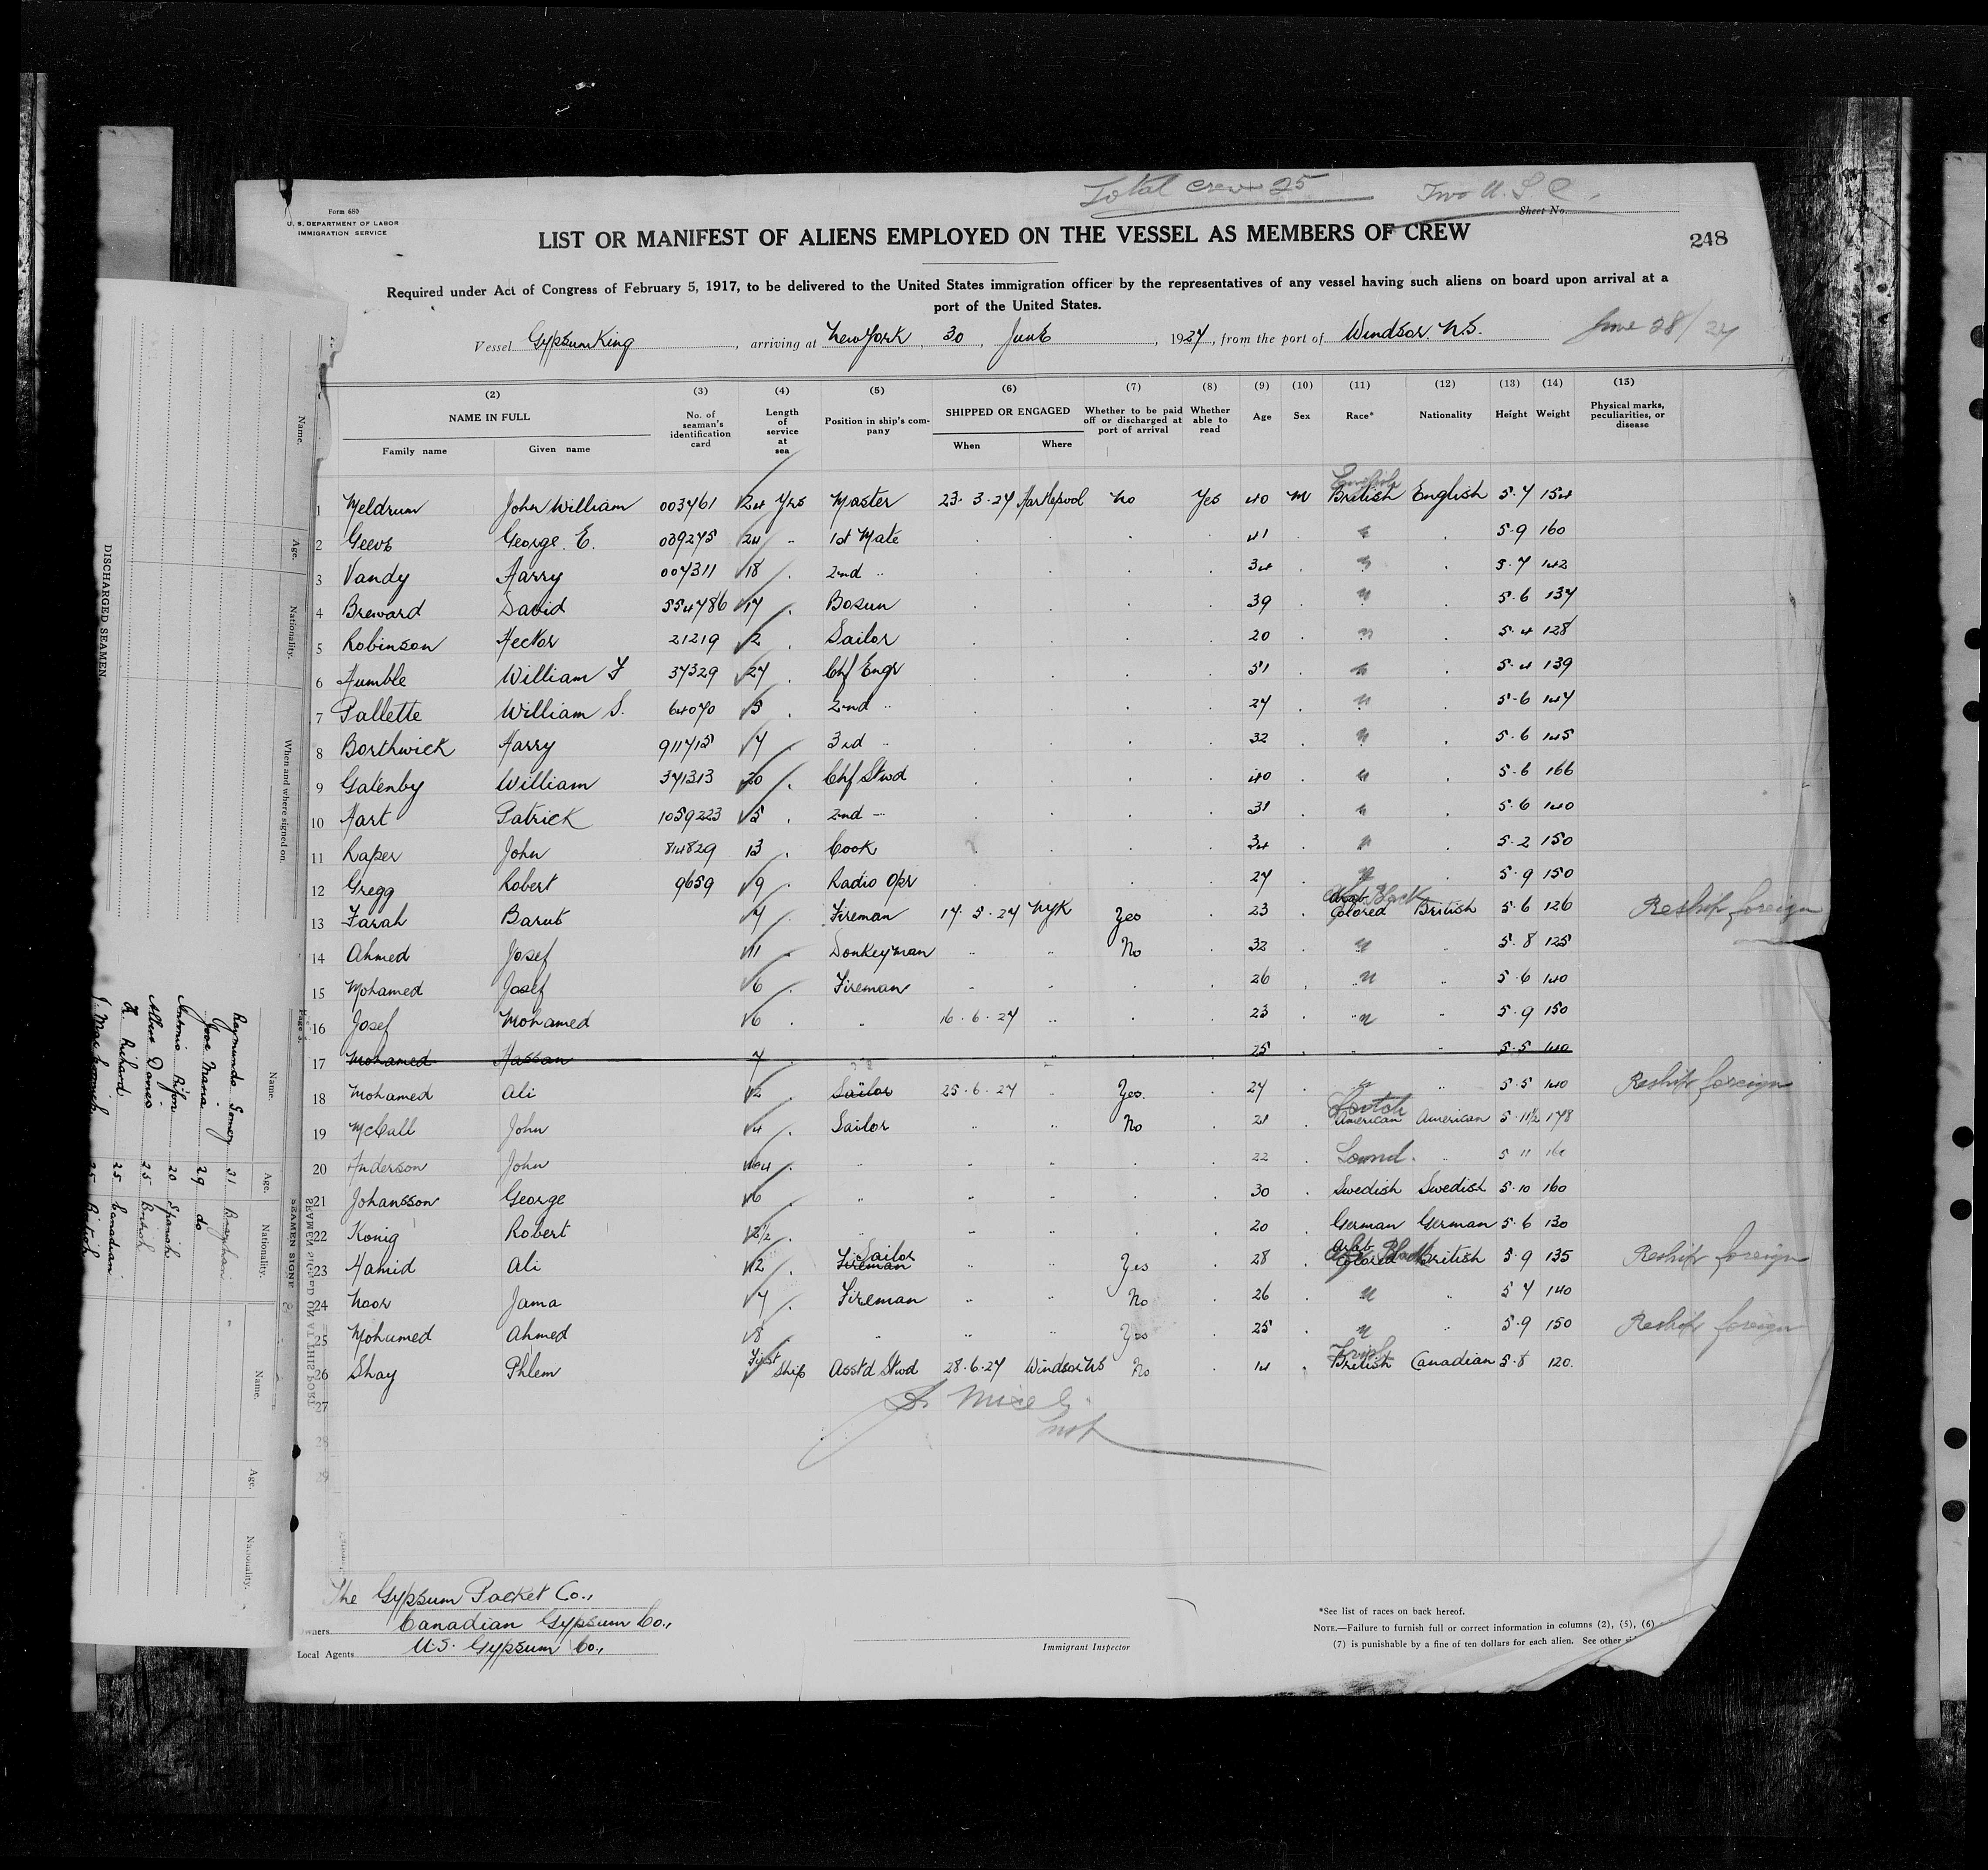 Total crew 25 Two U.S.C.
Form 680
U. S. DEPARTMENT OF LABOR
IMMIGRATION SERVICE
Sheet No.
LIST OR MANIFEST OF ALIENS EMPLOYED ON THE VESSEL AS MEMBERS OF CREW
248
Required under Act of Congress of February 5, 1917, to be delivered to the United States immigration officer by the representatives of any vessel having such aliens on board upon arrival at a
port of the United States.
Vessel Gypsum King, arriving at New York, 30, June, 1927, from the port of Windsor. N.S. June 28/27
(2) (3) (4) (5) (6) (7) (8) (9) (10) (11) (12) (13) (14) (15)
NAME IN FULL No. of seaman's identification card Length of service at sea Position in ship's company SHIPPED OR ENGAGED Whether to be paid off or discharged at port of arrival Whether able to read Age Sex Race* Nationality Height Weight Physical marks, peculiarities, or disease
Family name Given name When Where
1 Meldrum John William 003461 24 Yrs Master 23.3.27 Hartlepool No Yes 40 M British English 5.7 154
2 George. E. 24 1st Mate 41 5.9 160
3 Vandy Harry 007311 18 2nd 34 5.7 142
4 Breward David 554786 17 Bosun 39 5.6 137
5 Robinson Hector 21219 2 Sailor 20 5.4 128
6 Humble William F 37329 27 Chf Engr 51 5.4 139
7 Pallette William S. 64070 5 2nd 27 5.6 147
8 Borthwick Harry 911715 7 3rd 32 5.6 145
9 Gatenby William 371313 20 Chf Stwd 40 5.6 166
10 Hart Patrick 1059223 5 2nd 31 5.6 140
11 Raper John 814829 13 Cook 34 5.2 150
12 Gregg Robert 9659 9 Radio Opr 27 5.9 150
13 Farah Barut 7 Fireman 17.5.27 NYK Yes 23 Colored Black British 5.6 126 Reship foreign
14 Ahmed Josef 11 Donkeyman No 32 5.8 125
15 Mohamed Josef 6 Fireman 26 5.6 140
16 Josef Mohamed 6 16.6.27 23 5.9 150
17 Mohamed Hassan 7 25 5.5 140
18 Mohamed Ali 2 Sailor 25.6.27 Yes. 27 5.5 140 Reship foreign
19 McCall John 4 Sailor No 21 Scotch American American 5.11½ 178
20 Anderson John 22 5 11 160
21 Johansson George 6 30 Swedish Swedish 5.10 160
22 Konig Robert 2½ 20 German German 5.6 130
23 Hamid Ali 2 Fireman Sailor Yes 28 Arab Black Colored British 5.9 135 Reship foreign
24 Noor Jama 7 Fireman No 26 5 7 140
25 Mohumed Ahmed 8 Yes 25 5.9 150 Reship foreign
26 Shay Phlem First Ship Asstd Stwd 28.6.27 Windsor NS No 14 Irish British Canadian 5.8 120.
27
28
29
The Gypsum Packet Co.,
Owners Canadian Gypsum Co.,
Local Agents U.S. Gypsum Co.,
Immigrant Inspector
*See list of races on back hereof.
NOTE.—Failure to furnish full or correct information in columns (2), (5), (6)
(7) is punishable by a fine of ten dollars for each alien. See other
Name. Age. Nationality. When and where signed on.
DISCHARGED SEAMEN.
Page 3.
SEAMEN SIGNED ON AT THIS PORT
Name. Age. Nationality. Name. Age. Nationality.
Raymundo Gomez 31
29 do
Antonio 20 Spanish
Albert Davies 25 British
Richard 25 Canadian
25 British